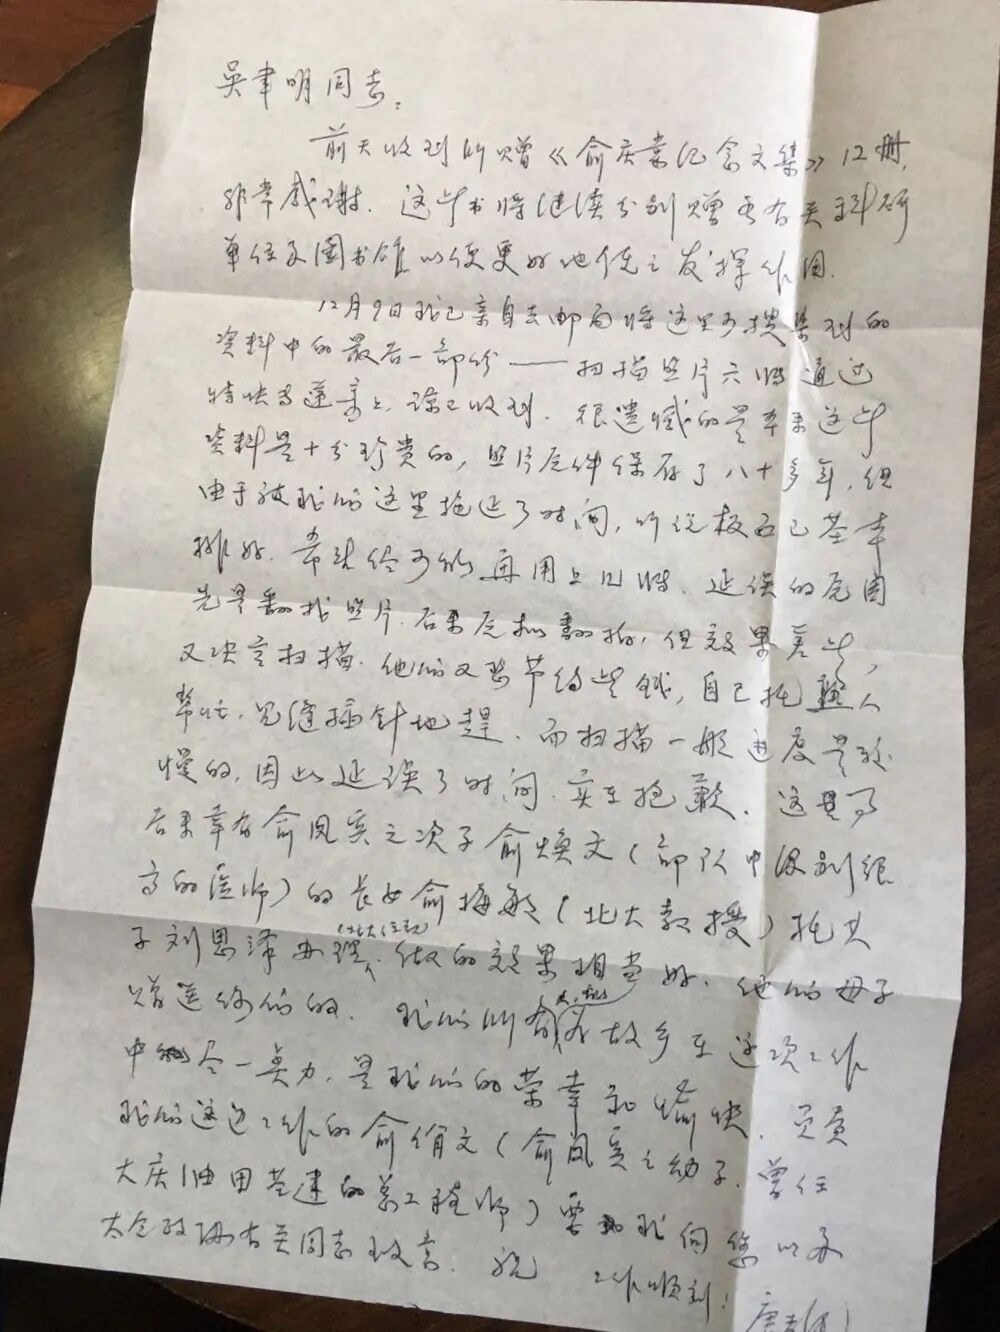 吴聿明同志:
前天收到所赠《俞庆棠纪念文集》12册,
非常感谢. 这些书将继续分别赠予有关科研
单位及图书馆以便更好地使之发挥作用.
12月9日我已亲自去邮局将这里所搜集到的
资料中的最后一部分——扫描照片六张通过
特快专递寄上, 谅已收到. 很遗憾的是本来这些
资料是十分珍贵的, 照片原件保存了八十多年, 但
由于被我们这里拖延了时间, 听说板面已基本
排好. 希望尽可能再用上几张. 延误的原因
先是翻找照片. 后来原拟翻拍, 但效果差些,
又决定扫描. 他们又想节约些钱, 自己托熟人
帮忙, 见缝插针地赶. 而扫描一般进度是较
慢的, 因此延误了时间. 实在抱歉. 这里
后来幸有俞凤宾之次子俞焕文(部队中级别很
高的医师)的长女俞梅敏(北大教授)托其
子刘思泽办理, 做的效果相当好. 他们母子
赠送给你们的. 我们所有 故乡在这次工作
中尽一点力, 是我们的荣幸和愉快. 负责
我们这边工作的俞俏文(俞凤宾之幼子. 曾任
大庆油田基建的总工程师)要我向您以及
太仓政协有关同志致意. 祝
工作顺利!